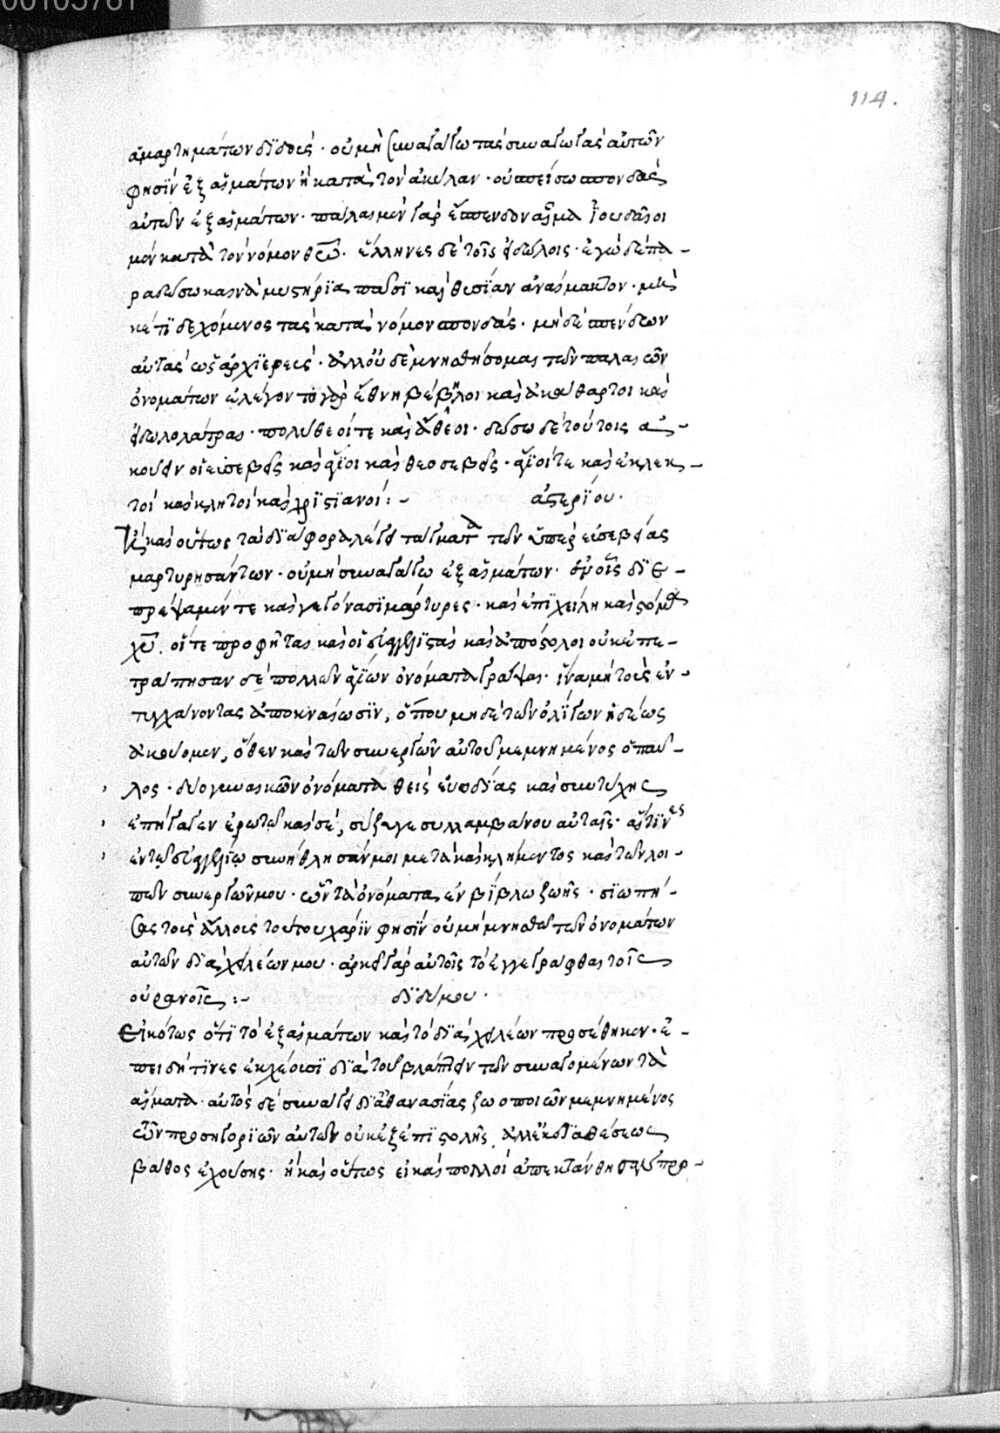 00105761
114.
ἁμαρτημάτων διδούς· οὐ μὴ συναγάγω τὰς συναγωγὰς αὐτῶν
φησὶν ἐξ αἱμάτων ἢ κατὰ τὸν ἀκύλαν· οὐ σπείσω σπονδὰς
αὐτῶν ἐξ αἱμάτων· πάλαι μὲν γὰρ ἔσπενδον αἷμα ἰουδαῖοι
μὲν κατὰ τὸν νόμον θεῶ· ἕλληνες δὲ τοῖς εἰδώλοις· ἐγὼ δὲ πα-
ραδώσω καινὰ μυστήρια πᾶσι καὶ θυσίαν ἀναίμακτον· μη
κέτι δεχόμενος τὰς κατὰ νόμον σπονδάς· μηδὲ σπένδων
αὐτὰς ὡς ἀρχιερεύς· ἀλλ' οὐδὲ μνησθήσομαι τῶν πάλαι
ὀνομάτων ἐλέγοντο γὰρ ἔθνη βέβηλοι καὶ ἀκάθαρτοι καὶ
εἰδωλολάτραι· πολύθεοί τε καὶ ἄθεοι· δώσω δὲ τούτοις
εὐσεβεῖς καὶ ἅγιοι καὶ θεοσεβεῖς· ἅγιοί τε καὶ ἐκλεκ-
τοὶ καὶ κλητοὶ καὶ χριστιανοί:- ἀστερίου·
καὶ οὕτως τὰ διάφορα λέγει τάγματα τῶν ὑπὲρ εὐσεβείας
μαρτυρησάντων· οὐ μὴ συναγάγω ἐξ αἱμάτων·
καὶ γεγόνασι μάρτυρες· καὶ ἐπὶ χείλη καὶ στόμα
χῦ. οἵ τε προφῆται καὶ οἱ εὐαγγελισταὶ καὶ ἀπόστολοι οὐκ ἐπε-
τράπησαν δὲ πολλῶν ἁγίων ὀνόματα γράψαι· ἵνα μὴ τοὺς ἐν-
τυγχάνοντας ἀποκναίωσιν, ὅπου μηδὲ τῶν ὀλίγων ἡδέως
ἀκούομεν, ὅθεν καὶ τῶν συνεργῶν αὐτοῦ μεμνημένος ὁ παῦ-
λος· δύο γυναικῶν ὀνόματα θεὶς εὐοδίας καὶ συντύχης
ἐπήγαγεν ἐρωτῶ καὶ σέ, σύζυγε συλλαμβάνου αὐταῖς· αἵτινες
ἐν τῶ εὐαγγελίω συνήθλησάν μοι μετὰ καὶ κλήμεντος καὶ τῶν λοι-
πῶν συνεργῶν μου· ὧν τὰ ὀνόματα ἐν βίβλω ζωῆς· σιωπή-
σας τοὺς ἄλλους τούτου χάριν φησὶν οὐ μὴ μνησθῶ τῶν ὀνομάτων
αὐτῶν διὰ χειλέων μου· ἀρκεῖ γὰρ αὐτοῖς τὸ ἐγγεγράφθαι τοῖς
οὐρανοῖς:- διδύμου·
Εἰκότως ὅτι τὸ ἐξ αἱμάτων καὶ τὸ διὰ χειλέων προσέθηκεν· ἐ-
πειδή τινες ἐκχέουσι διὰ τοῦ βλάπτειν τῶν συναγομένων τὰ
αἵματα· αὐτὸς δὲ συνάγει δι' ἀθανασίας ζωοποιῶν μεμνημένος
τῶν προσηγοριῶν αὐτῶν οὐκ ἐξ ἐπιπολῆς ἀλλ' ἐκ διαθέσεως
βάθος ἐχούσης· ἢ καὶ οὕτως εἰ καὶ πολλοὶ ἀπεκτάνθησαν